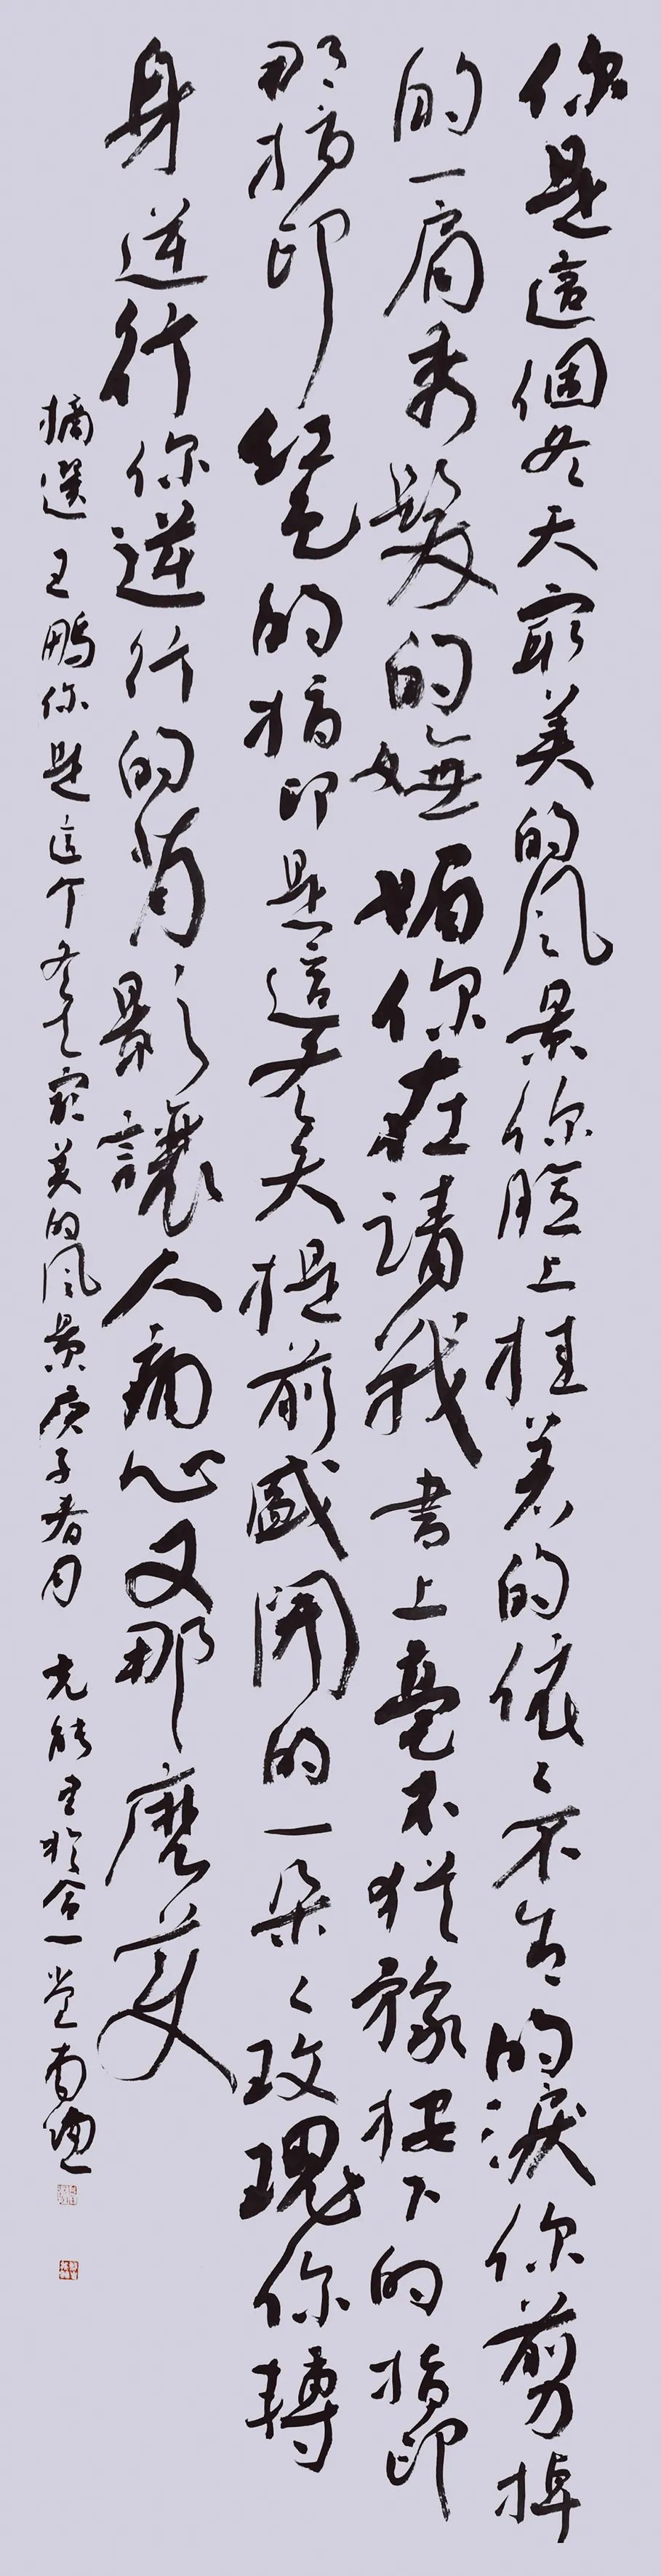 你是這個冬天最美的风景你臉上挂着的依〻不舍的淚你剪掉
的一肩秀髮的嫵媚你在請戰書上毫不犹豫按下的指印
那指印紅色的指印是這个冬天提前盛開的一朵〻玫瑰你轉
身逆行你逆行的背影讓人痛心又那麼美
摘選王鹏你是這个冬天最美的风景庚子春月 克能書於合一堂南窗